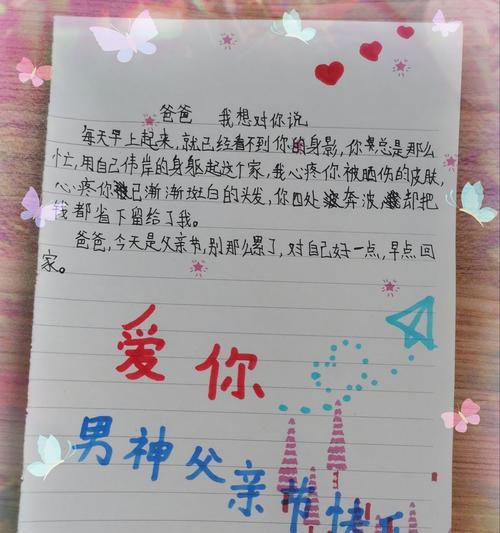 爸爸 我想对你说
每天早上起来,就已经看不到你的身影,你总是那么
忙,用自己伟岸的身躯起这个家,我心疼你被晒伤的皮肤,
心疼你已渐渐斑白的头发,你四处奔波,却把
钱都省下留给了我。
爸爸,今天是父亲节,别那么累了,对自己好一点,早点回
家。
爱你
男神父亲节快乐